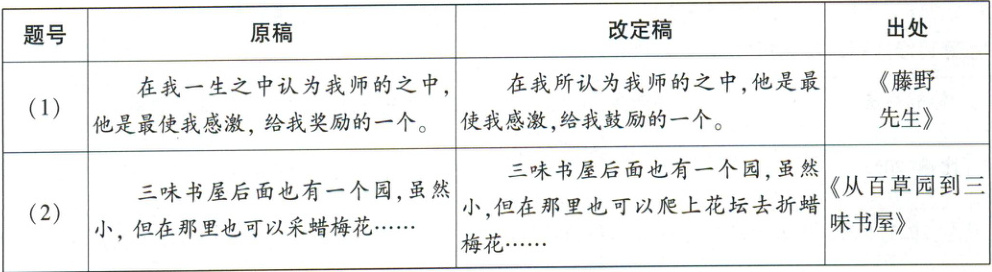 题号 原稿 改定稿 出处
(1)
在我一生之中认为我师的之中,
他是最使我感激, 给我奖励的一个。
在我所认为我师的之中,他是最
使我感激,给我鼓励的一个。
《藤野
先生》
(2)
三味书屋后面也有一个园,虽然
小, 但在那里也可以采蜡梅花……
三味书屋后面也有一个园,虽然
小,但在那里也可以爬上花坛去折蜡
梅花……
《从百草园到三
味书屋》